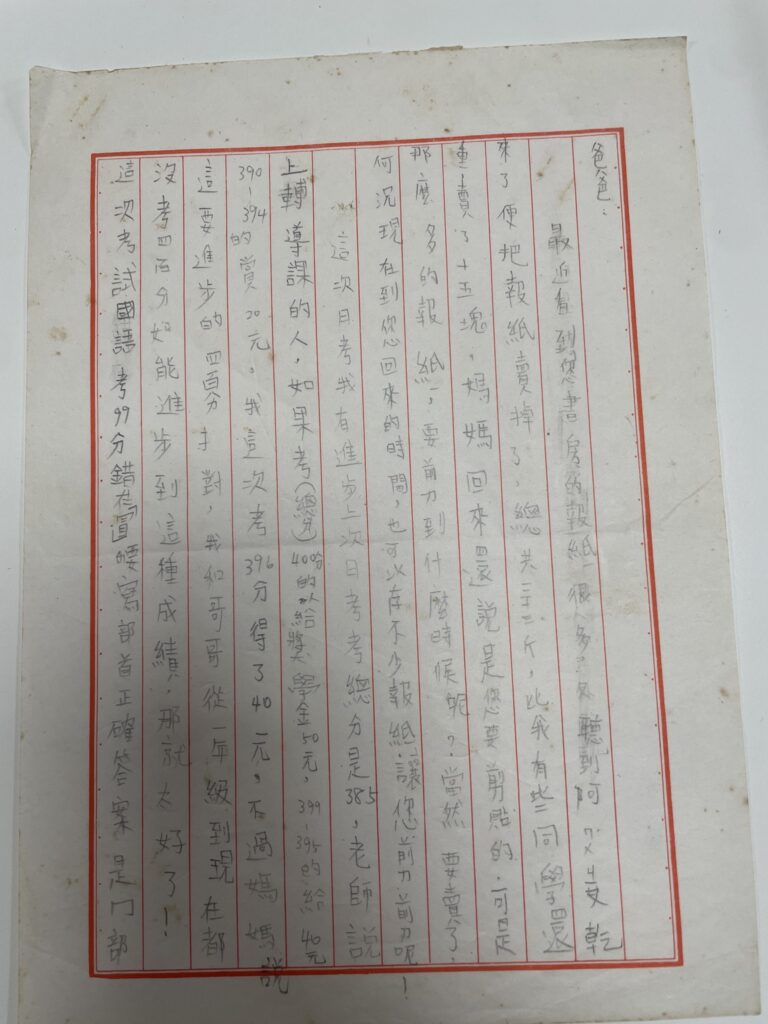 爸爸：
最近看到您書房的報紙很多，又聽到阿ㄆㄛ要乾
來了便把報紙賣掉了，總共三十三斤，比我有些同學還
重，賣了十五塊，媽媽回來還說是您要剪貼的，可是
那麼多的報紙，要剪到什麼時候呢？當然要賣了，
何況現在到您回來的時間，也可以存不少報紙讓您剪剪呢！
這次月考我有進步上次月考考總分是385，老師說
上轉導課的人，如果考(總分)400分的以給獎學金50元，399-395的給40元
390-394的賞20元，我這次考396分得了40元，不過媽媽說
這要進步的四百分才對，我和哥哥從一年級到現在都
沒考四百分如能進步到這種成績，那就太好了！
這次考試國語考99分錯在冒要寫部首正確答案是冂部